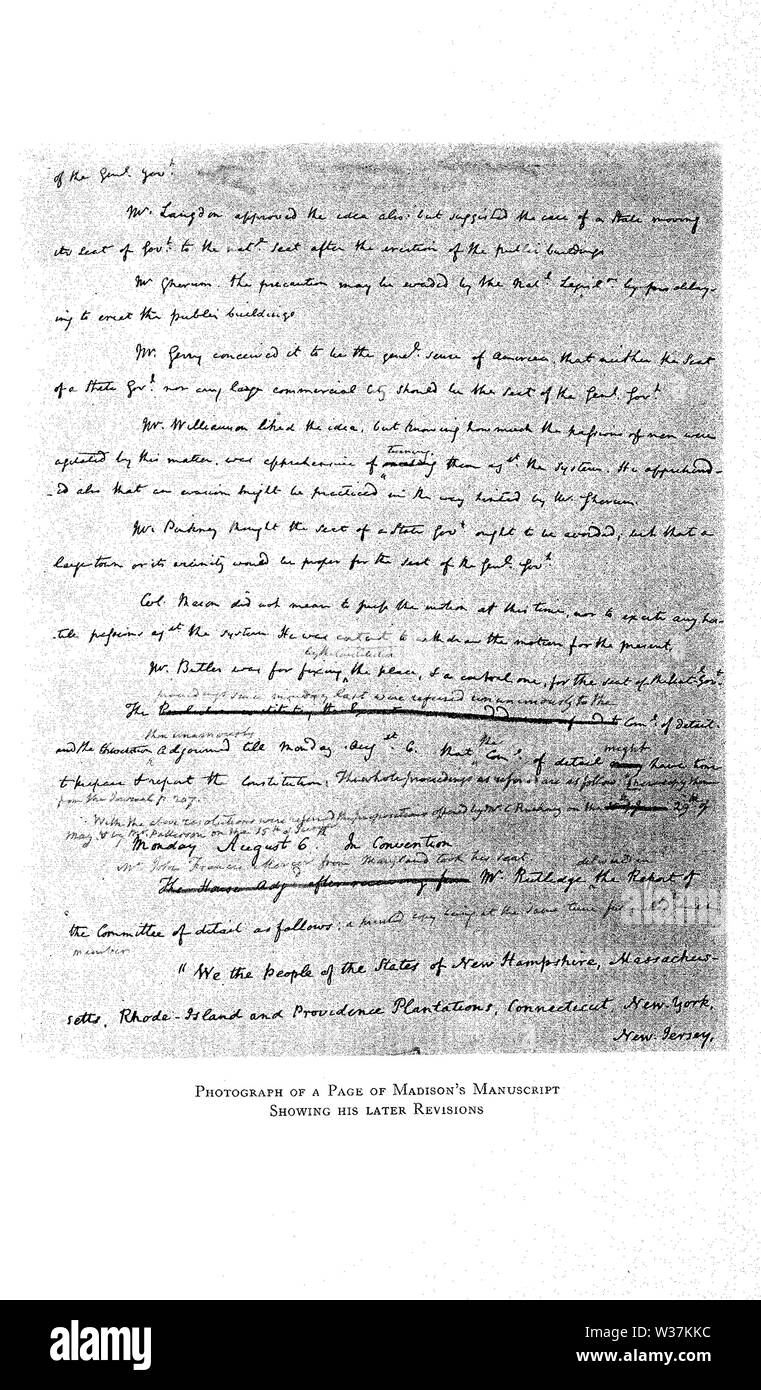 of the Genl. Govt.
Mr. Langdon approved the idea also, but suggested the case of a State moving
its seat of Govt. to the natl. seat after the erection of the public buildings
Mr Ghorum. the precaution may be evaded by the Natl. Legislre. by delay-
ing to erect the public buildings
Mr. Gerry conceived it to be the genel. sense of America, that neither the Seat
of a State Govt. nor any large commercial City should be the seat of the Genl. Govt.
Mr. Williamson liked the idea, but knowing how much the passions of men were
agitated by this matter, was apprehensive of turning them agst. the system. He apprehend-
-ed also that an evasion might be practiced in the way hinted by Mr. Ghorum.
Mr. Pinkney thought the seat of a State Govt. ought to be avoided; but that a
large town or its vicinity would be proper for the seat of the Genl. Govt.
Col. Mason did not mean to press the motion at this time, nor to excite any hos-
-tile passions agst. the system. He was content to withdraw the motion for the present,
by the Constitution
Mr. Butler was for fixing the place, & a central one, for the seat of the Natl. Govt.
proceedings since monday last were referred unanimously to the
The Come. of detail
then unanimously
and the Convention Adjourned till Monday Augst. 6. that the Come. of detail might have time
to prepare & report the Constitution; The whole proceedings as referred are as follow
from the Journal p. 207.
With the above resolutions were referred the propositions offered by Mr. C. Pinckney on the 29th. of
May, & by Mr. Patterson on the 15th. of June
Monday August 6. In Convention
Mr. John Francis Mercer from Maryland took his seat
The House Mr. Rutlidge delivered in the Report of
the Committee of detail as follows; a printed copy being at the same time
member
"We the people of the States of New Hampshire, Massachus-
setts, Rhode-Island and Providence Plantations, Connecticut, New-York,
New-Jersey,
Photograph of a Page of Madison's Manuscript
Showing his later Revisions
alamy
Image ID: W37KKC
www.alamy.com